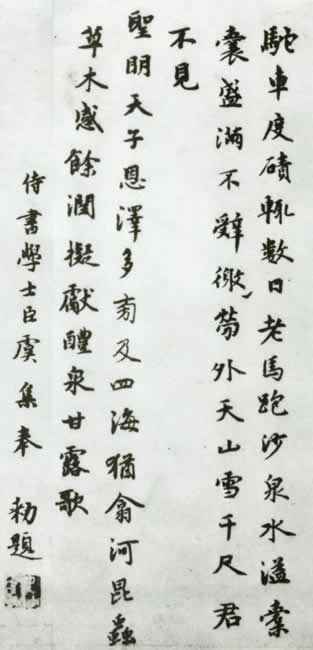 駞車度磧輒數日老馬跑沙泉水溢橐
囊盛滿不辭微勞外天山雪千尺君
不見
聖明天子恩澤多旁及四海猶翕河昆蟲
草木感餘潤擬獻醴泉甘露歌
侍書學士臣虞集奉 勑題